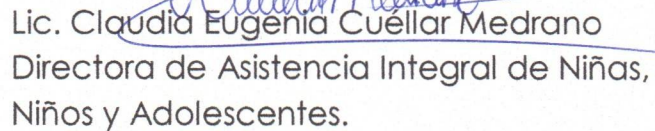 Lic. Claudia Eugenia Cuéllar Medrano
Directora de Asistencia Integral de Niñas,
Niños y Adolescentes.